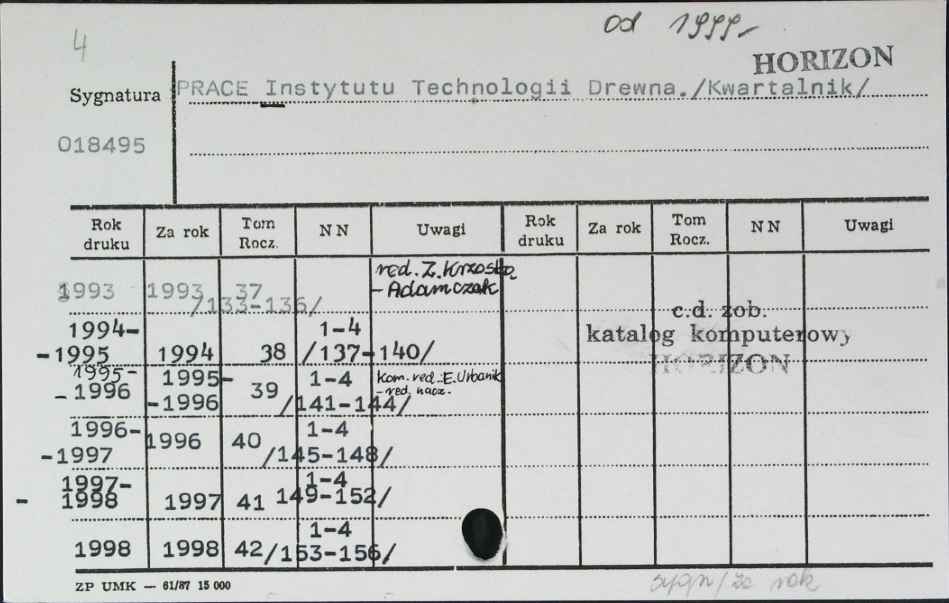 4
od 1999-
HORIZON
Sygnatura PRACE Instytutu Technologii Drewna./Kwartalnik/
018495
Rok druku Za rok Tom Rocz. NN Uwagi Rok druku Za rok Tom Rocz. NN Uwagi
1993 1993 37 /133-136/ red. Z. Krzoska - Adamczak
1994- -1995 1994 38 1-4 /137-140/
c.d. zob.
katalog komputerowy
HORIZON
1995- - 1996 1995- -1996 39 1-4 /141-144/ kom. red.: E. Urbanik - red. nacz.
1996- -1997 1996 40 1-4 /145-148/
1997- - 1998 1997 41 1-4 149-152/
1998 1998 42 1-4 /153-156/
ZP UMK — 61/87 15 000
sygn/za rok